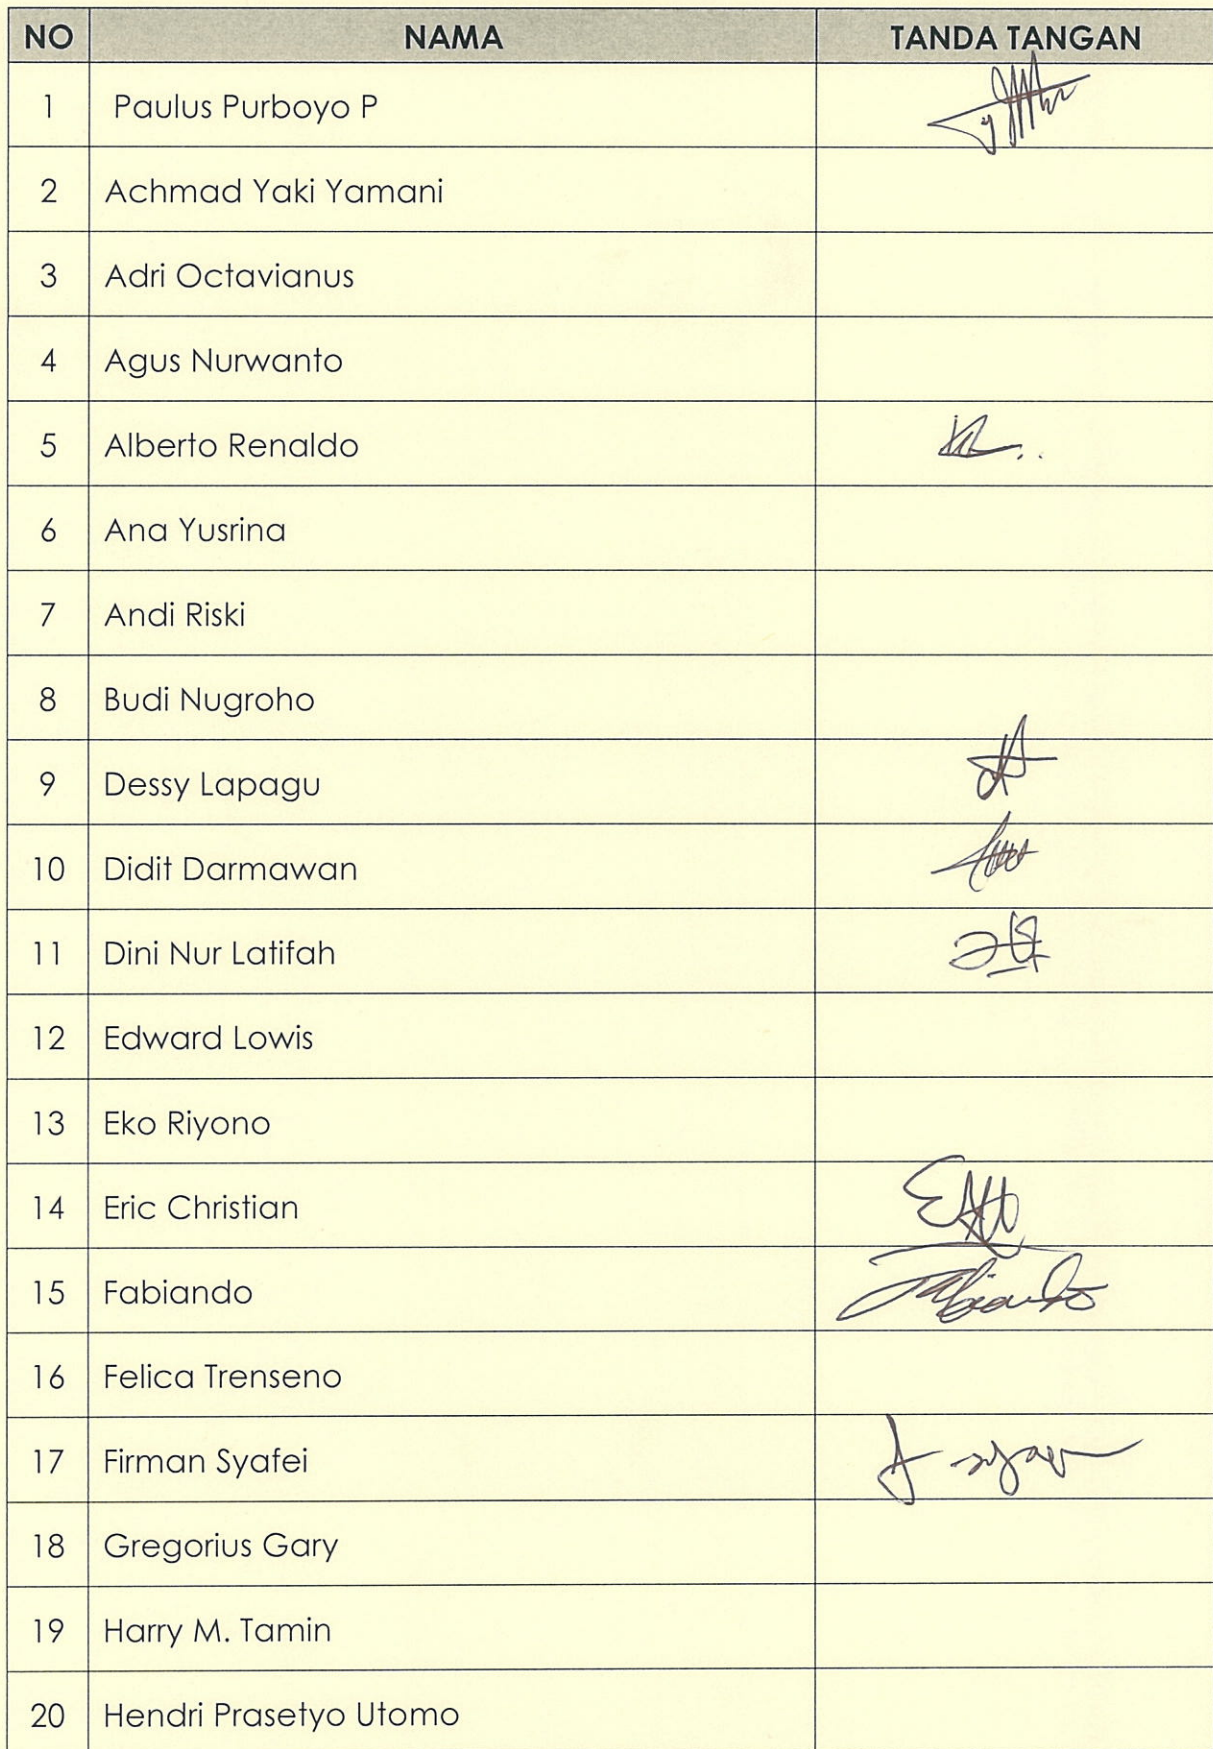 NO NAMA TANDA TANGAN
1 Paulus Purboyo P
2 Achmad Yaki Yamani
3 Adri Octavianus
4 Agus Nurwanto
5 Alberto Renaldo
6 Ana Yusrina
7 Andi Riski
8 Budi Nugroho
9 Dessy Lapagu
10 Didit Darmawan
11 Dini Nur Latifah
12 Edward Lowis
13 Eko Riyono
14 Eric Christian
15 Fabiando
16 Felica Trenseno
17 Firman Syafei
18 Gregorius Gary
19 Harry M. Tamin
20 Hendri Prasetyo Utomo